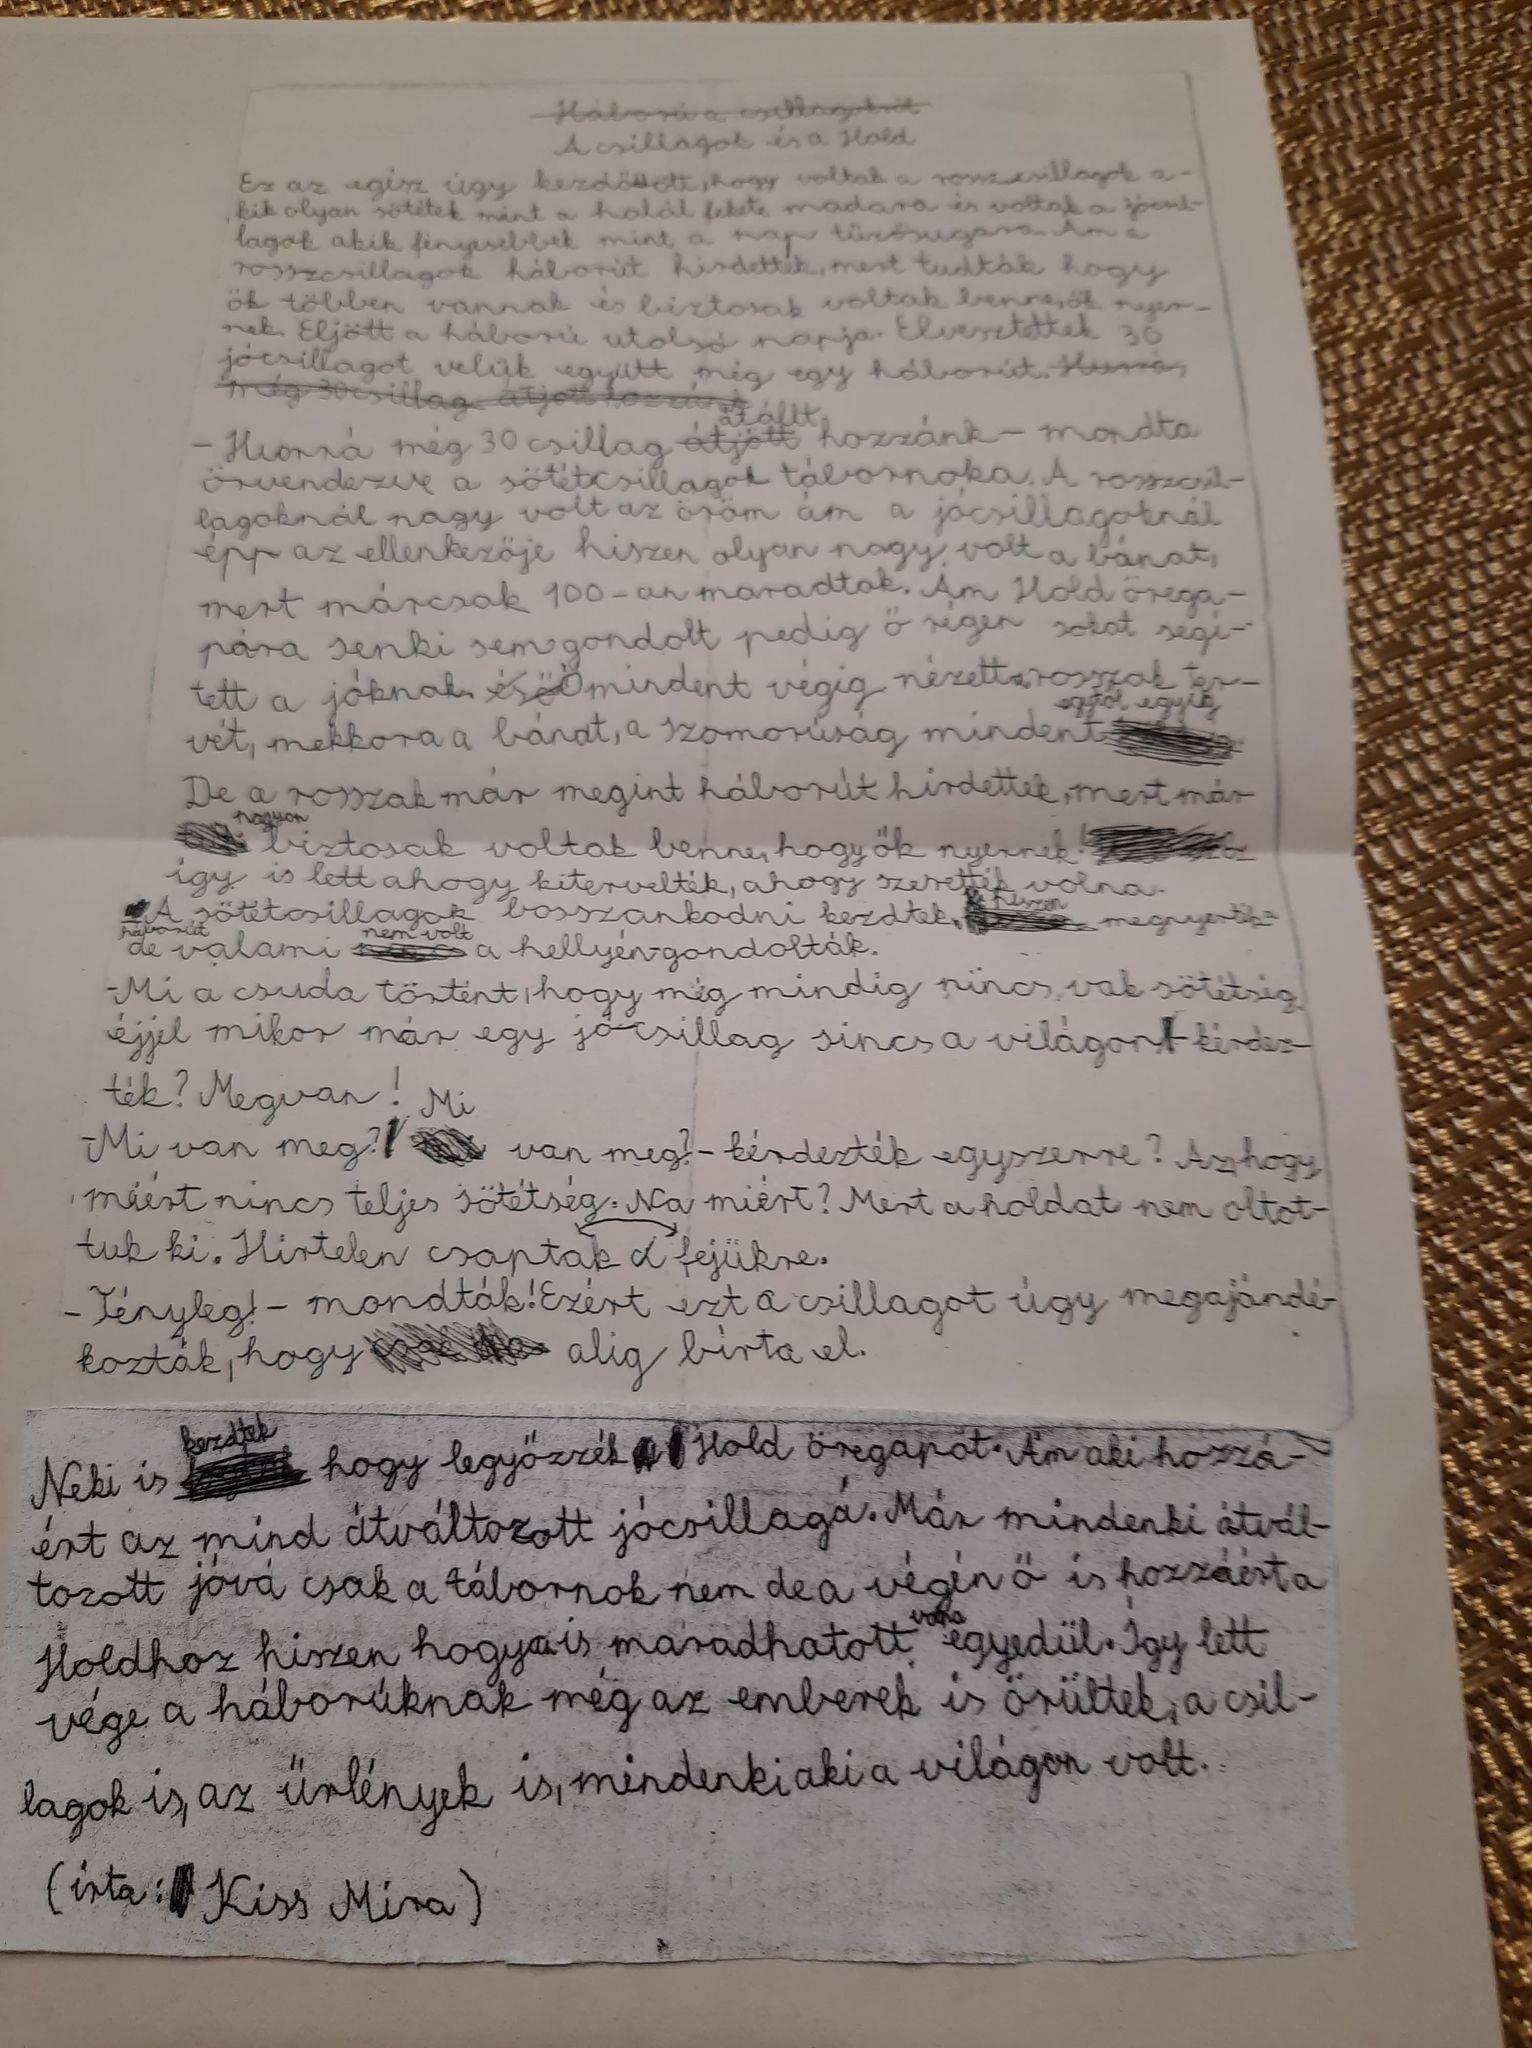 Háború a csillagokról
A csillagok és a Hold
Ez az egész úgy kezdődött, hogy voltak a rosszcsillagok a-
kik olyan sötétek mint a halál fekete madara és voltak a jócsil-
lagok akik fényesebbek mint a nap tűzősugara. Ám a
rosszcsillagok háborút hirdettek, mert tudták hogy
ők többen vannak és biztosak voltak benne, ők nyer-
nek. Eljött a háború utolsó napja. Elvesztettek 30
jócsillagot velük együtt még egy háborút. Hurrá,
még 30 csillag átjött hozzánk
átállt
- Hurrá még 30 csillag átjött hozzánk - mondta
örvendezve a sötétcsillagok tábornoka. A rosszcsil-
lagoknál nagy volt az öröm ám a jócsillagoknál
épp az ellenkezője hiszen olyan nagy volt a bánat,
mert márcsak 100-an maradtak. Ám Hold örega-
pára senki sem gondolt pedig ő régen sokat segí-
tett a jóknak, és ő Ő mindent végig nézett a rosszak ter-
egytől egyig
vét, mekkora a bánat, a szomorúság mindent
De a rosszak már megint háborút hirdettek, mert már
nagyon
biztosak voltak benne, hogy ők nyernek!
így is lett ahogy kitervelték, ahogy szerették volna.
hiszen
- A sötétcsillagok bosszankodni kezdtek, megnyerték a
háborút nem volt
de valami a hellyén-gondolták.
-Mi a csuda történt, hogy még mindig nincs vak sötétség
éjjel mikor már egy jó csillag sincs a világon - kérdez-
ték? Megvan!
Mi
-Mi van meg? van meg? - kérdezték egyszerre? Az, hogy
miért nincs teljes sötétség. Na miért? Mert a holdat nem oltot-
tuk ki. Hirtelen csaptak a fejükre.
- Tényleg! - mondták! Ezért ezt a csillagot úgy megajándé-
kozták, hogy alig bírta el.
kezdtek
Neki is hogy legyőzzék Hold öregapót. Ám aki hozzá-
ért az mind átváltozott jócsillagá. Már mindenki átvál-
tozott jóvá csak a tábornok nem de a végén ő is hozzáért a
volna
Holdhoz hiszen hogyan is maradhatott egyedül. Így lett
vége a háborúknak még az emberek is örültek, a csil-
lagok is, az űrlények is, mindenki aki a világon volt.
(írta: Kiss Mira)